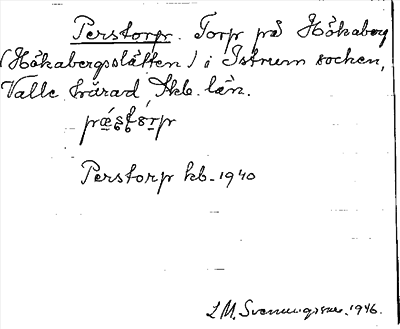 Perstorp. Torp på Hökaberg
(Hökabergsslätten) i Istrum socken,
Valle härad, Skb. län.
pǽstórp
Perstorp kb. 1940
L M. Svenungsson. 1946.